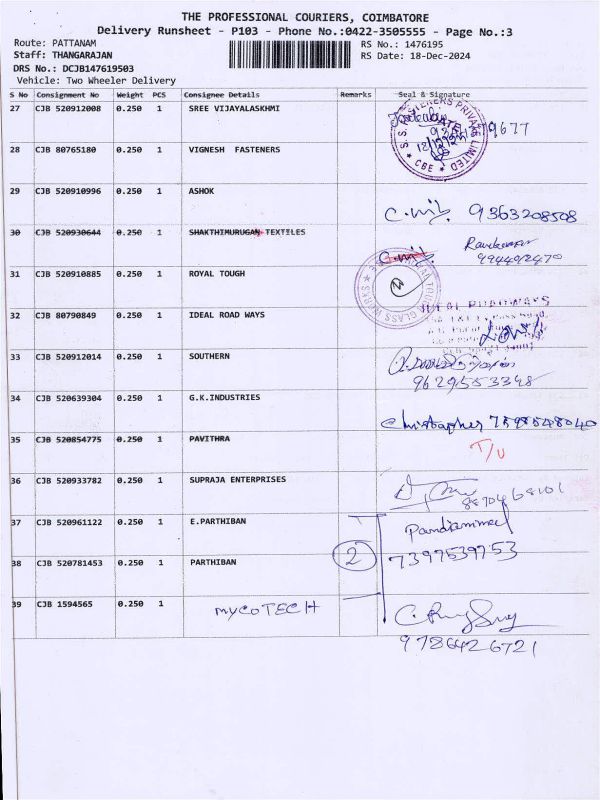 THE PROFESSIONAL COURIERS, COIMBATORE
Delivery Runsheet - P103 - Phone No.:0422-3505555 - Page No.:3
Route: PATTANAM RS No.: 1476195
Staff: THANGARAJAN RS Date: 18-Dec-2024
DRS No.: DCJB147619503
Vehicle: Two Wheeler Delivery
S No Consignment No Weight PCS Consignee Details Remarks Seal & Signature
27 CJB 520912008 0.250 1 SREE VIJAYALASKHMI
28 CJB 80765180 0.250 1 VIGNESH FASTENERS
29 CJB 520910996 0.250 1 ASHOK
9363208508
30 CJB 520930644 0.250 1 SHAKTHIMURUGAN TEXTILES
31 CJB 520910885 0.250 1 ROYAL TOUGH
32 CJB 80790849 0.250 1 IDEAL ROAD WAYS
33 CJB 520912014 0.250 1 SOUTHERN
9629553348
34 CJB 520639304 0.250 1 G.K.INDUSTRIES
Christopher
35 CJB 520854775 0.250 1 PAVITHRA T/U
36 CJB 520933782 0.250 1 SUPRAJA ENTERPRISES
8870468101
37 CJB 520961122 0.250 1 E.PARTHIBAN
2 7397539753
38 CJB 520781453 0.250 1 PARTHIBAN
39 CJB 1594565 0.250 1 MYCOTECH
9786426721